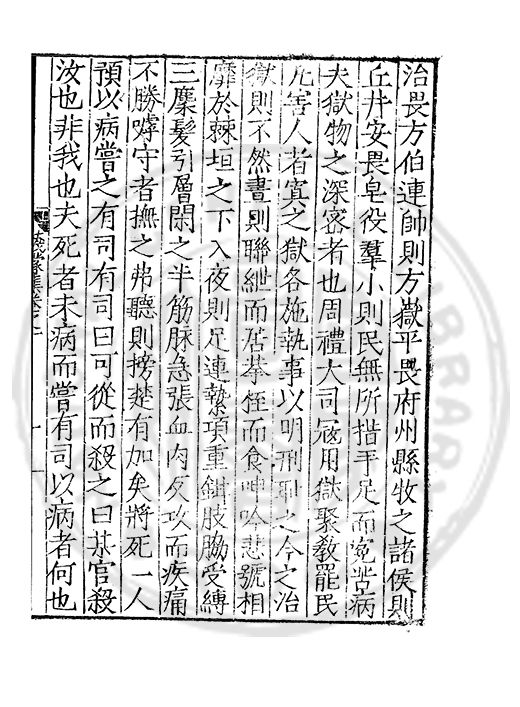 治畏方伯連帥則方嶽平畏府州縣牧之諸侯則
丘井安畏皂役羣小則民無所措手足而冤苦病
夫獄物之深宻者也周禮大司冦用獄聚敎罷民
凢害人者寘之獄各施執事以明刑耻之今之治
獄則不然晝則聯紲而居拲侄而食呻吟悲號相
靡於棘垣之下入夜則足連縶項重鉗肢脇受縛
三麋髮引層閑之半筋脉急張血肉交攻而疾痛
不勝嘑守者撫之弗聽則搒楚有加矣將死一人
預以病嘗之有司有司曰可從而殺之曰某官殺
汝也非我也夫死者未病而嘗有司以病者何也